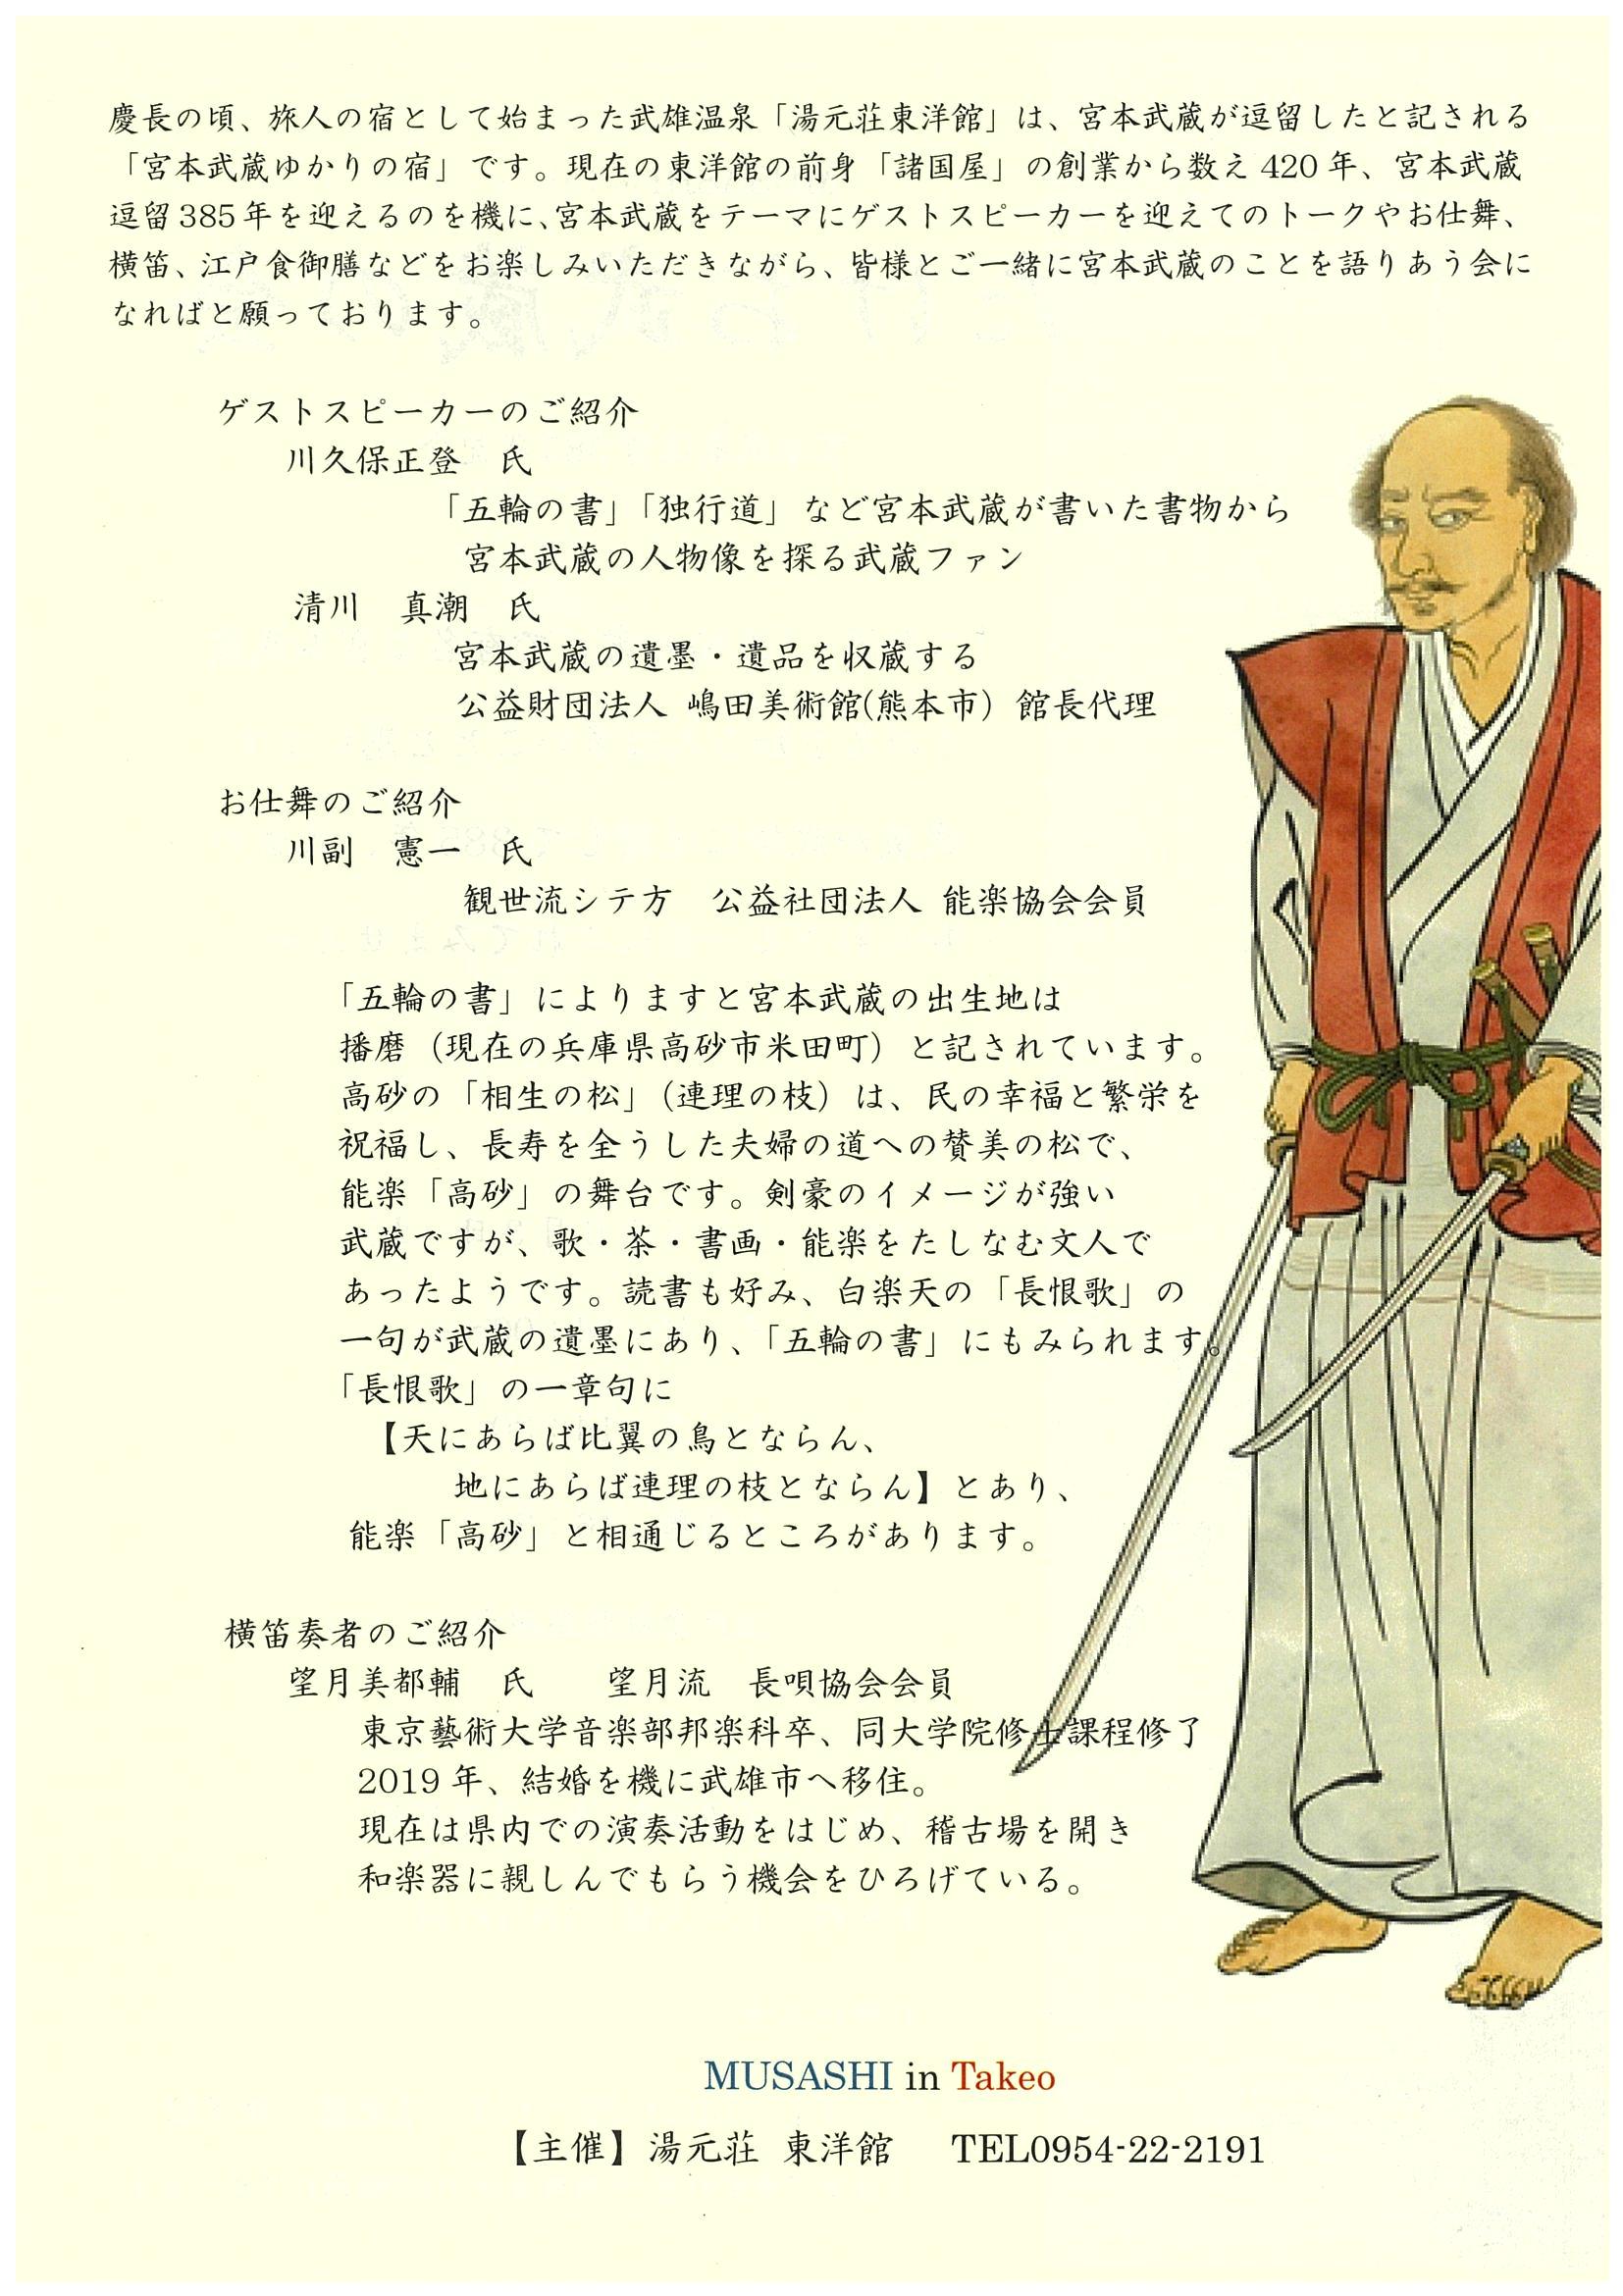 慶長の頃、旅人の宿として始まった武雄温泉「湯元荘東洋館」は、宮本武蔵が逗留したと記される
「宮本武蔵ゆかりの宿」です。現在の東洋館の前身「諸国屋」の創業から数え 420 年、宮本武蔵
逗留 385 年を迎えるのを機に、宮本武蔵をテーマにゲストスピーカーを迎えてのトークやお仕舞、
横笛、江戸食御膳などをお楽しみいただきながら、皆様とご一緒に宮本武蔵のことを語りあう会に
なればと願っております。
ゲストスピーカーのご紹介
川久保正登 氏
「五輪の書」「独行道」など宮本武蔵が書いた書物から
宮本武蔵の人物像を探る武蔵ファン
清川 真潮 氏
宮本武蔵の遺墨・遺品を収蔵する
公益財団法人 嶋田美術館(熊本市) 館長代理
お仕舞のご紹介
川副 憲一 氏
観世流シテ方 公益社団法人 能楽協会会員
「五輪の書」によりますと宮本武蔵の出生地は
播磨（現在の兵庫県高砂市米田町）と記されています。
高砂の「相生の松」（連理の枝）は、民の幸福と繁栄を
祝福し、長寿を全うした夫婦の道への賛美の松で、
能楽「高砂」の舞台です。剣豪のイメージが強い
武蔵ですが、歌・茶・書画・能楽をたしなむ文人で
あったようです。読書も好み、白楽天の「長恨歌」の
一句が武蔵の遺墨にあり、「五輪の書」にもみられます。
「長恨歌」の一章句に
【天にあらば比翼の鳥とならん、
地にあらば連理の枝とならん】とあり、
能楽「高砂」と相通じるところがあります。
横笛奏者のご紹介
望月美都輔 氏 望月流 長唄協会会員
東京藝術大学音楽部邦楽科卒、同大学院修士課程修了
2019 年、結婚を機に武雄市へ移住。
現在は県内での演奏活動をはじめ、稽古場を開き
和楽器に親しんでもらう機会をひろげている。
MUSASHI in Takeo
【主催】湯元荘 東洋館 TEL0954-22-2191